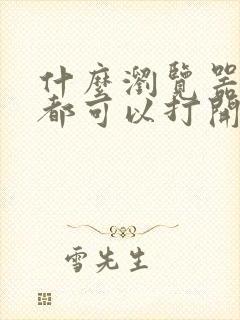 什麼瀏覽器
都可以打開
雪先生